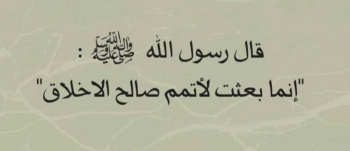 قال رسول الله ﷺ :
"إنما بعثت لأتمم صالح الاخلاق"